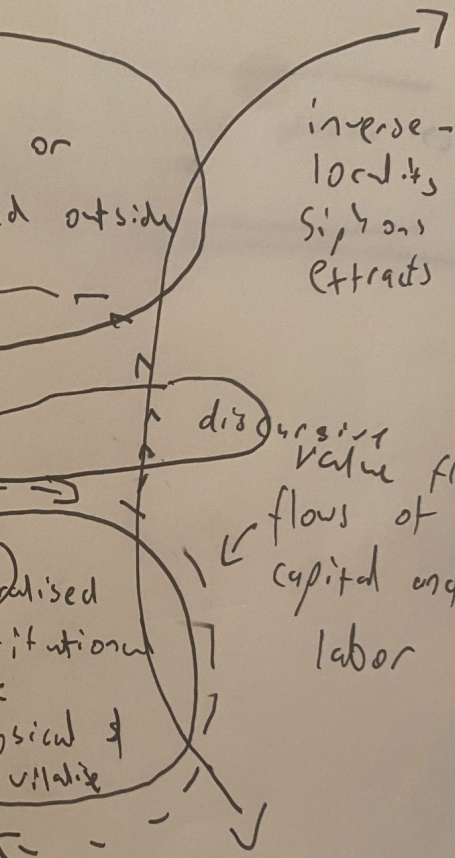 or
d outside
inverse -
locality
siphons
extracts
discursive
value fl
flows of
capital and
labor
alised
itutional
sical &